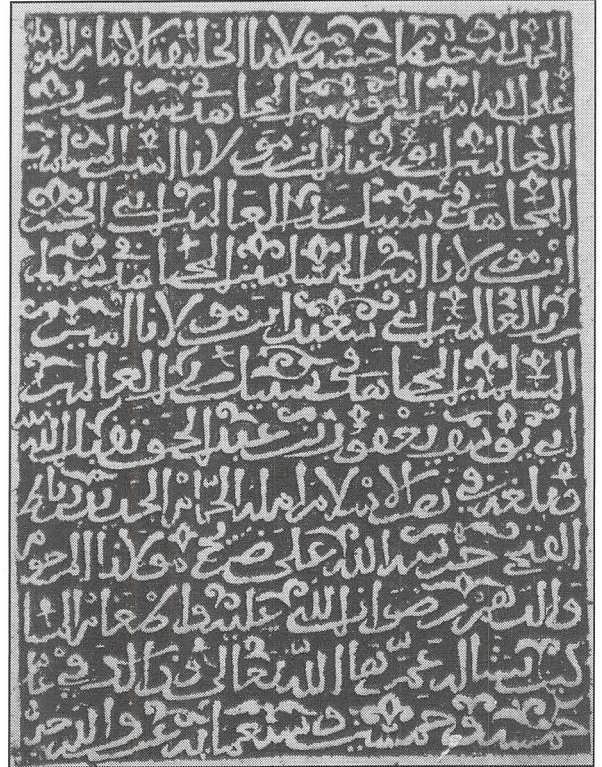 الحمد لله حبس هذا مولانا الخليفة الامام المتوكل
على الله امير المؤمنين المجاهد في سبيل رب
العالمين ابو عنان ابن مولانا امير المسلمين
المجاهد في سبيل رب العالمين ابي الحسن
ابن مولانا امير المسلمين المجاهد في سبيل
رب العالمين ابي سعيد ابن مولانا امير
المسلمين المجاهد في سبيل رب العالمين
ابي يوسف يعقوب بن عبد الحق تقبل الله
في نصر الاسلام امله
الفتح حرسه الله على ضريح مولانا المرحوم
والده رضوان الله عليه واطعام المسا
كين به عمره الله تعالى في عام
خمسة وخمسين وسبعمائة عرف الله خيره